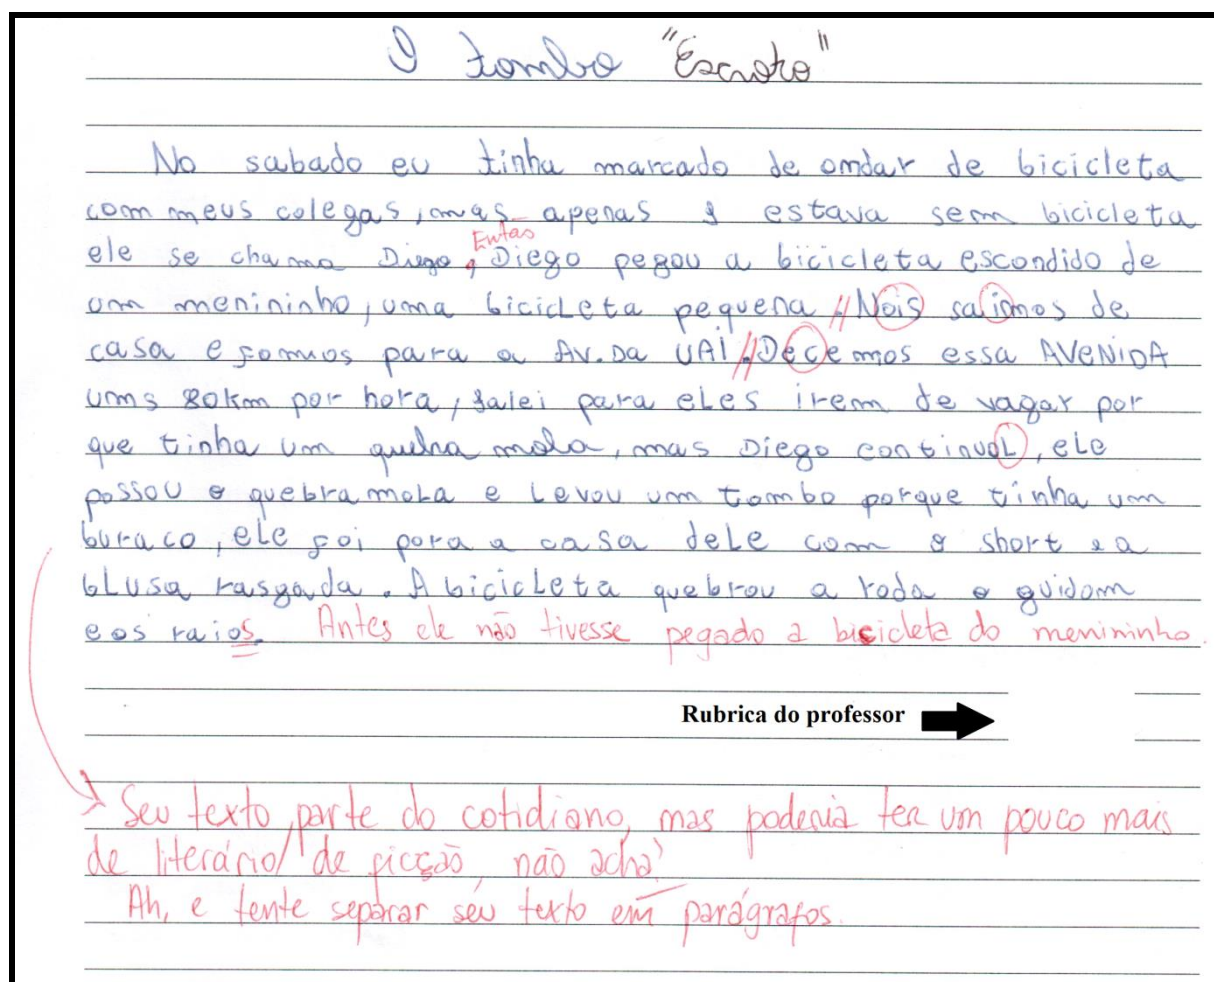 O tombo "Escroto"
No sabado eu tinha marcado de omdar de bicicleta
com meus colegas, mas apenas 1 estava sem bicicleta
ele se chama Diego, Entao Diego pegou a bicicleta escondido de
um menininho, uma bicicleta pequena. // Nois saimos de
casa e fomus para a AV. Da UAI. // Decemos essa AVENIDA
ums 80km por hora, falei para eles irem de vagar por
que tinha um quebra mola, mas Diego continuol, ele
passou o quebra mola e levou um tombo porque tinha um
buraco, ele foi para a casa dele com o short e a
blusa rasgada. A bicicleta quebrou a roda o guidom
e os raios. Antes ele não tivesse pegado a bicicleta do menininho.
Rubrica do professor
Seu texto parte do cotidiano, mas poderia ter um pouco mais
de literário/ de ficção, não acha?
Ah, e tente separar seu texto em parágrafos.